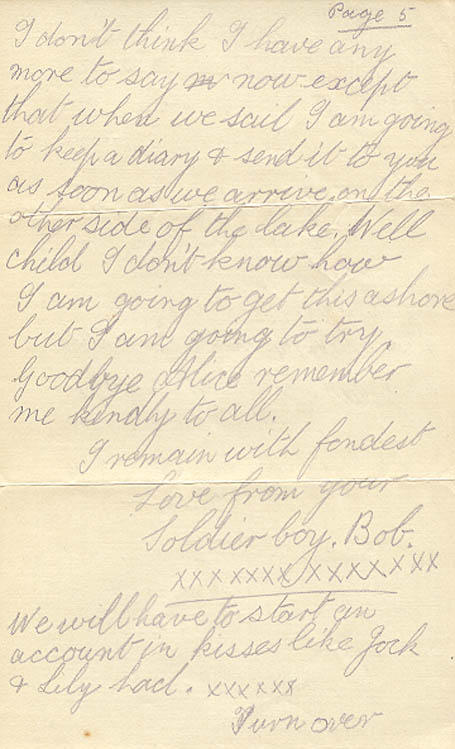 Page 5
I don't think I have any
more to say now except
that when we sail I am going
to keep a diary & send it to you
as soon as we arrive on the
other side of the lake. Well
child I don't know how
I am going to get this ashore
but I am going to try
Goodbye Alice remember
me kindly to all.
I remain with fondest
Love from your
Soldier boy. Bob.
xxxxxxx xxxxxxxx
We will have to start an
account in kisses like Jock
& Lily had. xxxxxx
Turn over